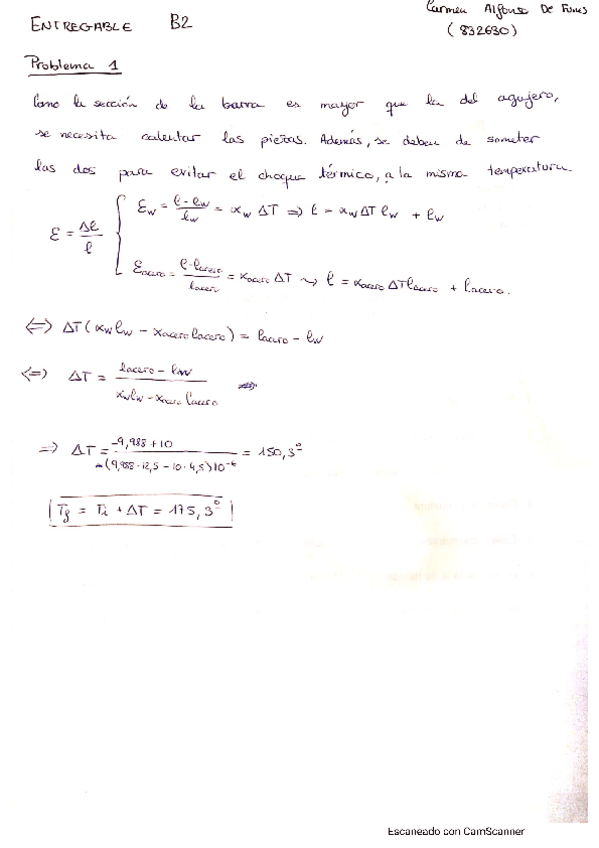 Carmen Alfonso De Funes
ENTREGABLE B2
(832630)
Problema 1
Como la sección de la barra es mayor que la del agujero,
se necesita calentar las piezas. Además, se deben de someter
las dos para evitar el choque térmico, a la misma temperatura.
ε = Δl/l { ε_w = (l - l_w)/l_w = α_w ΔT ⇒ l = α_w ΔT l_w + l_w
ε_acero = (l - l_acero)/l_acero = α_acero ΔT ⇝ l = α_acero ΔT l_acero + l_acero.
⇔ ΔT (α_w l_w - α_acero l_acero) = l_acero - l_w
⇔ ΔT = (l_acero - l_w)/(α_w l_w - α_acero l_acero)
⇒ ΔT = (-9,988 + 10)/(-(9,988 · 12,5 - 10 · 4,5) 10^-6) = 150,3º
T_f = T_i + ΔT = 175,3º
Escaneado con CamScanner